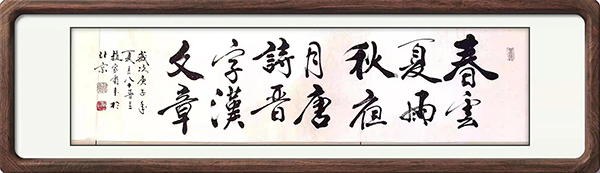 春雲
夏雨
秋夜
月唐
詩晋
字漢
文章
歲次庚子年
北京